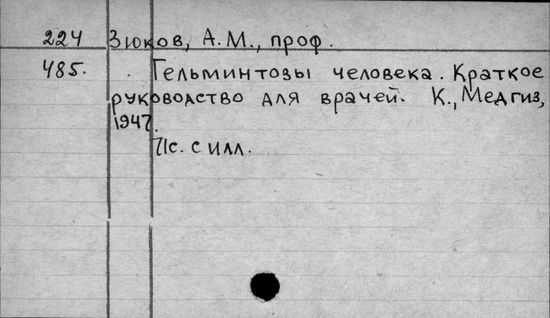 224 Зюков, А.М., проф.
485. Гельминтозы человека. Краткое
руководство для врачей. К., Медгиз,
1947.
71с. с илл.